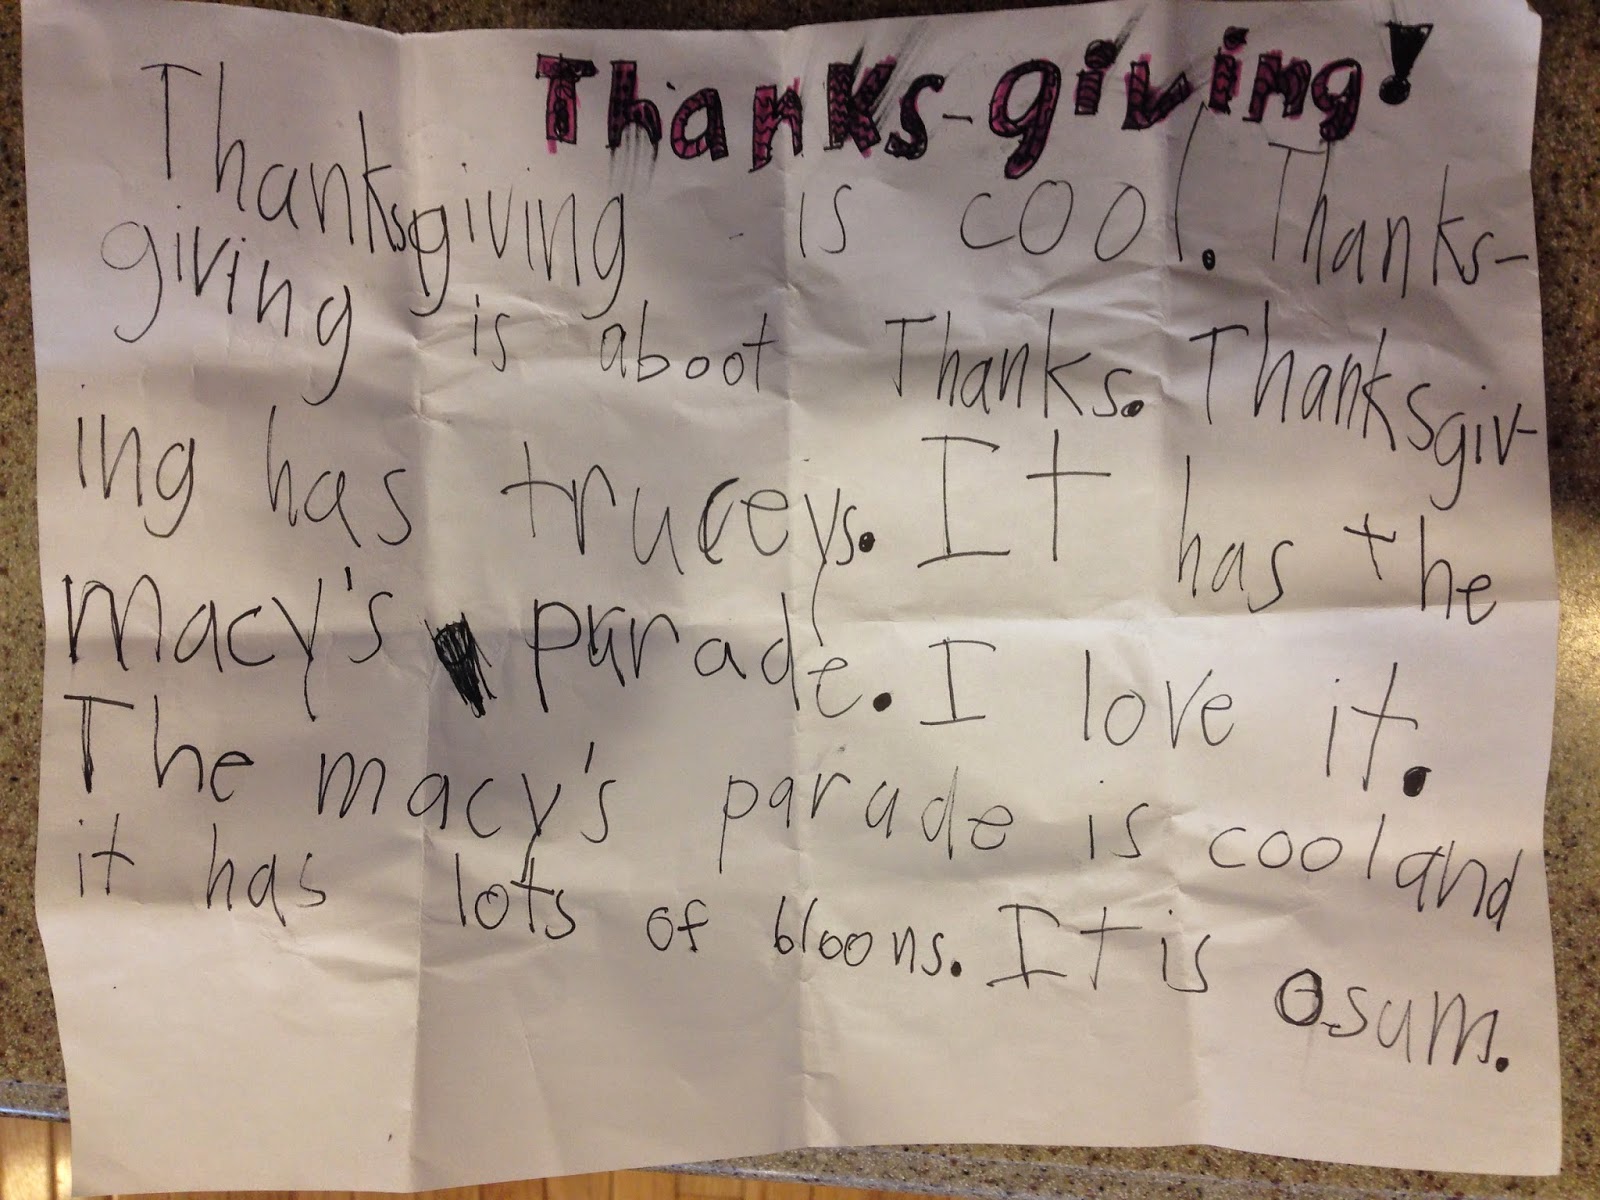 Thanks-giving!
Thanksgiving is cool. Thanks-
giving is aboot Thanks. Thanksgiv-
ing has truceys. It has the
macy's parade. I love it.
The macy's parade is cool and
it has lots of bloons. It is osum.